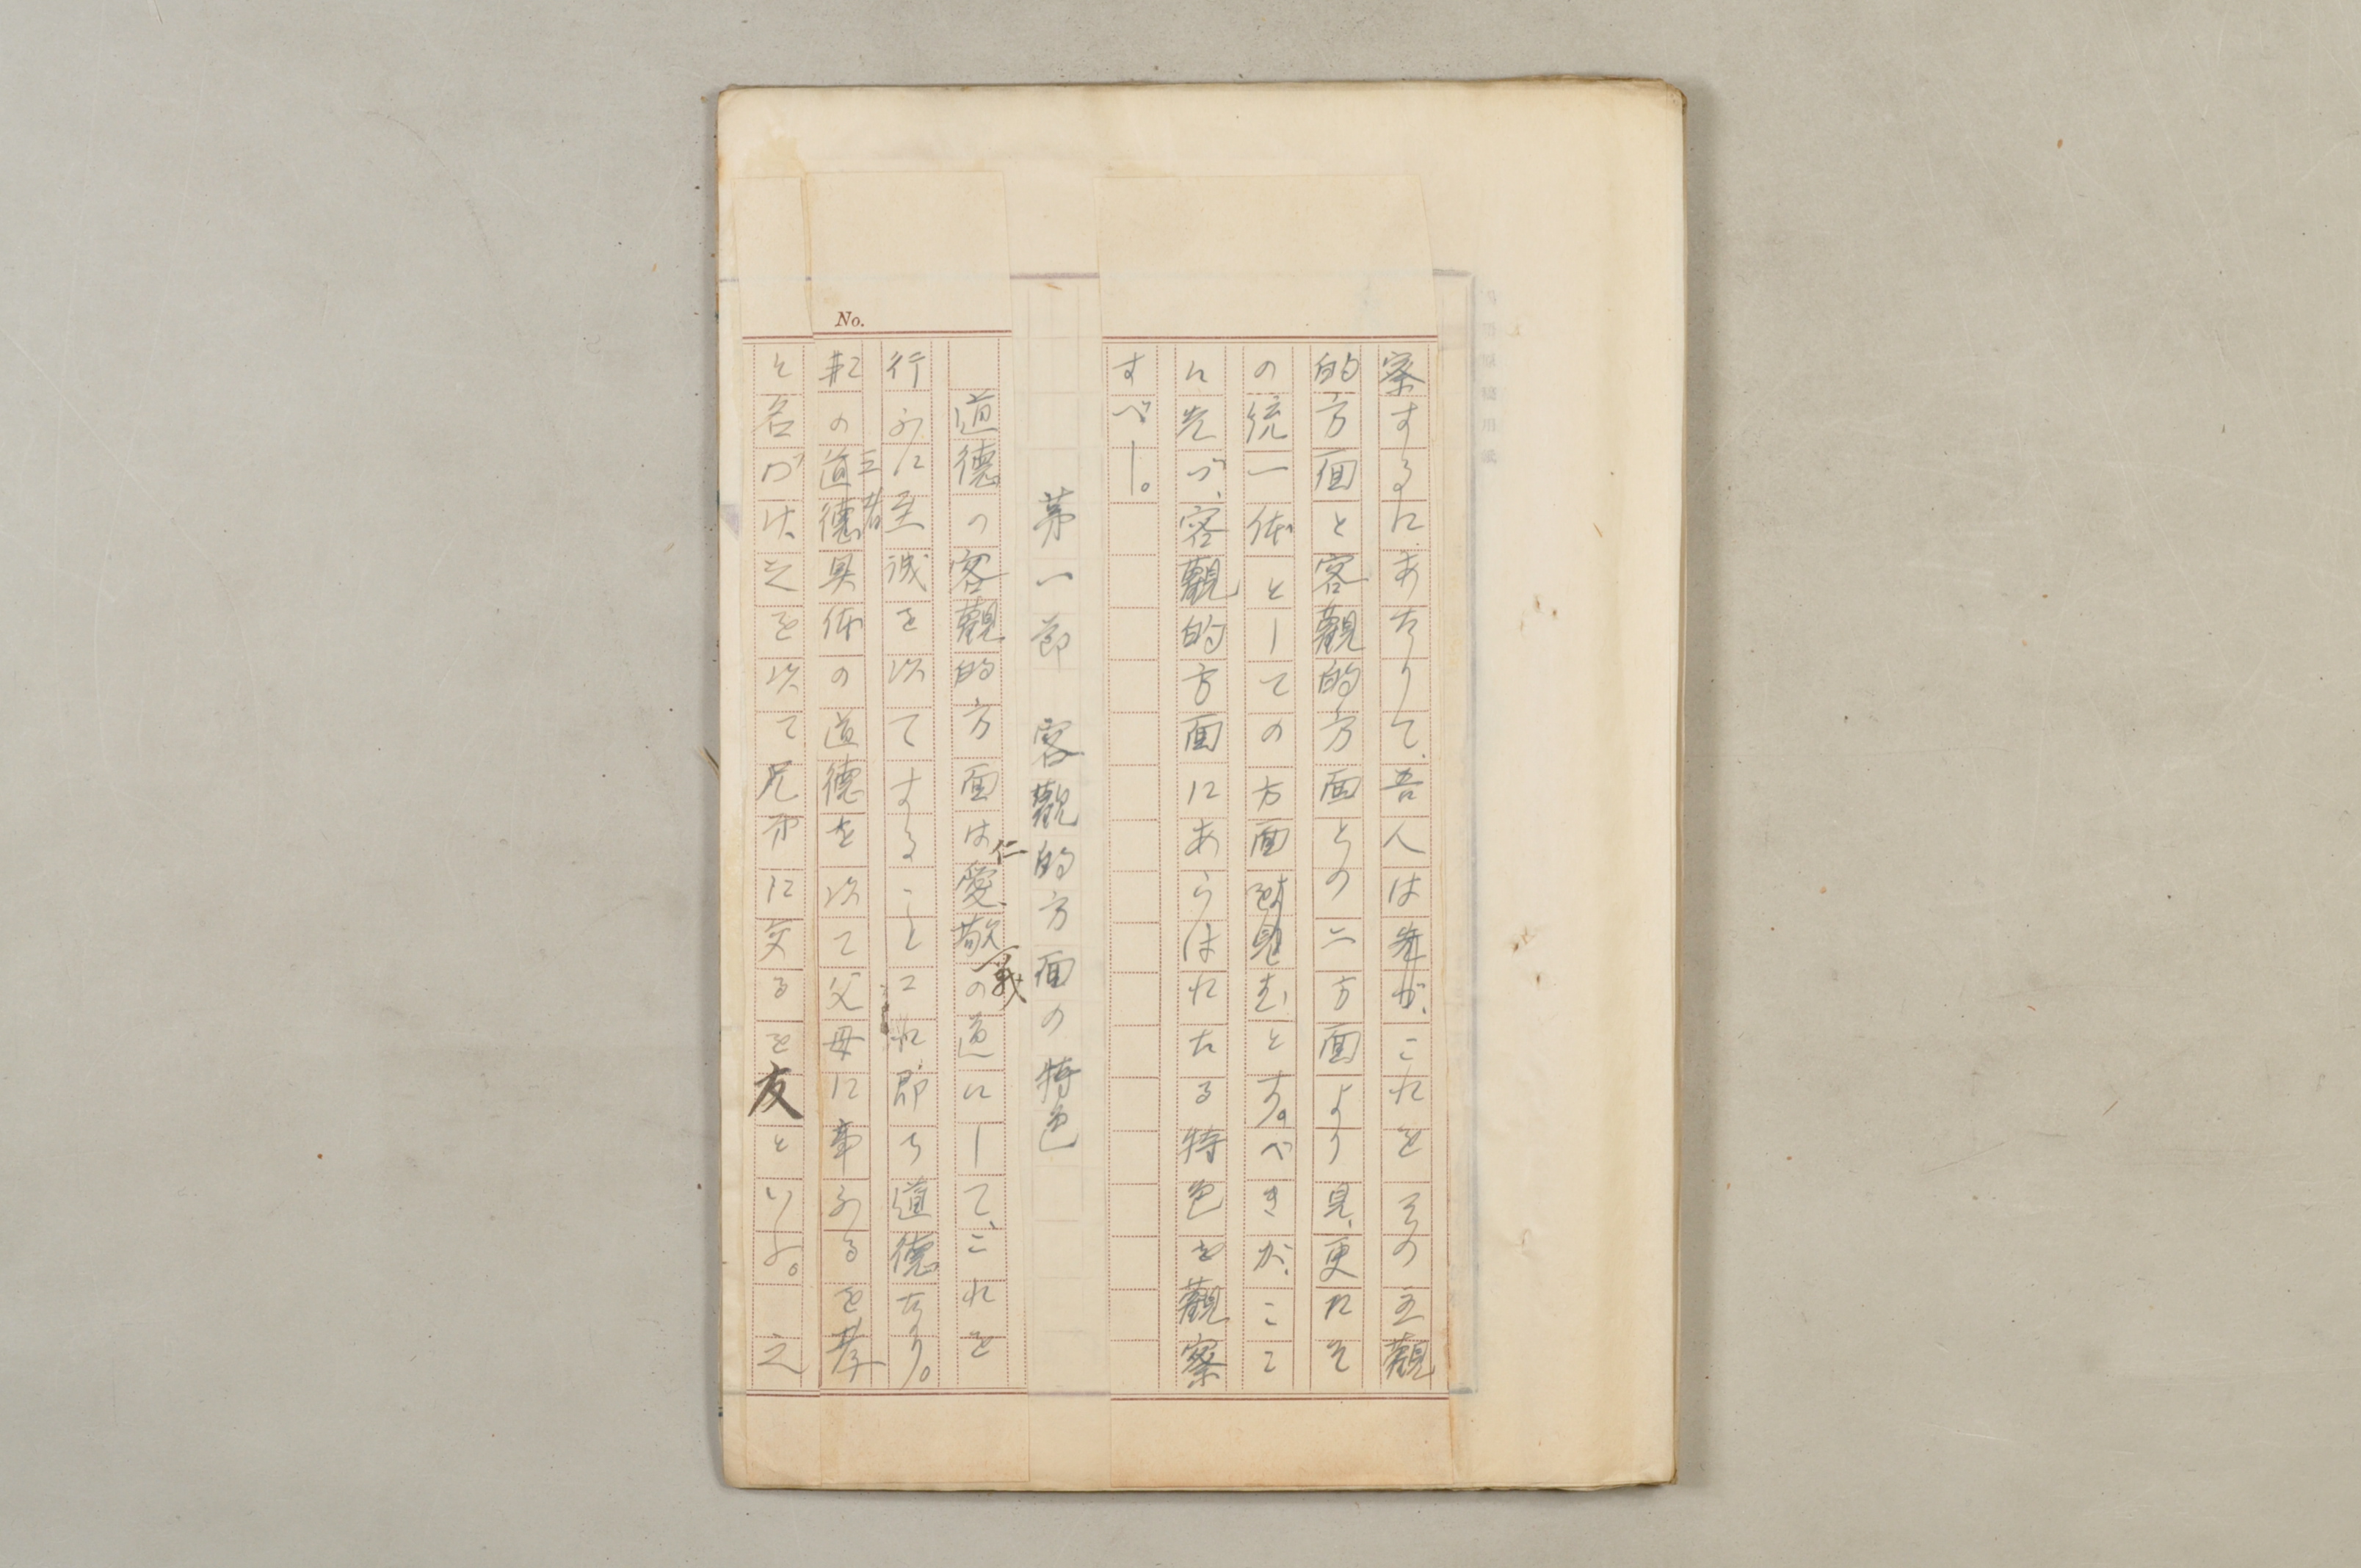 察するにあたりて、吾人は先がこれをその主觀
的方面と客觀的方面との二方面より見、更にそ
の統一体としての方面を見むとす。べきが、ここ
に先づ、客觀的方面にあらはれたる特色を觀察
すべし。
第一節 客觀的方面の特色
道德の客觀的方面は仁愛、敬義の道にして、これを
行ふに至誠を以てすることこれ即ち道德なり。
三者
の道德具体の道德を以て父母に事ふるを孝
と名づけ、之を以て兄弟に交るを友といふ。 之
No.